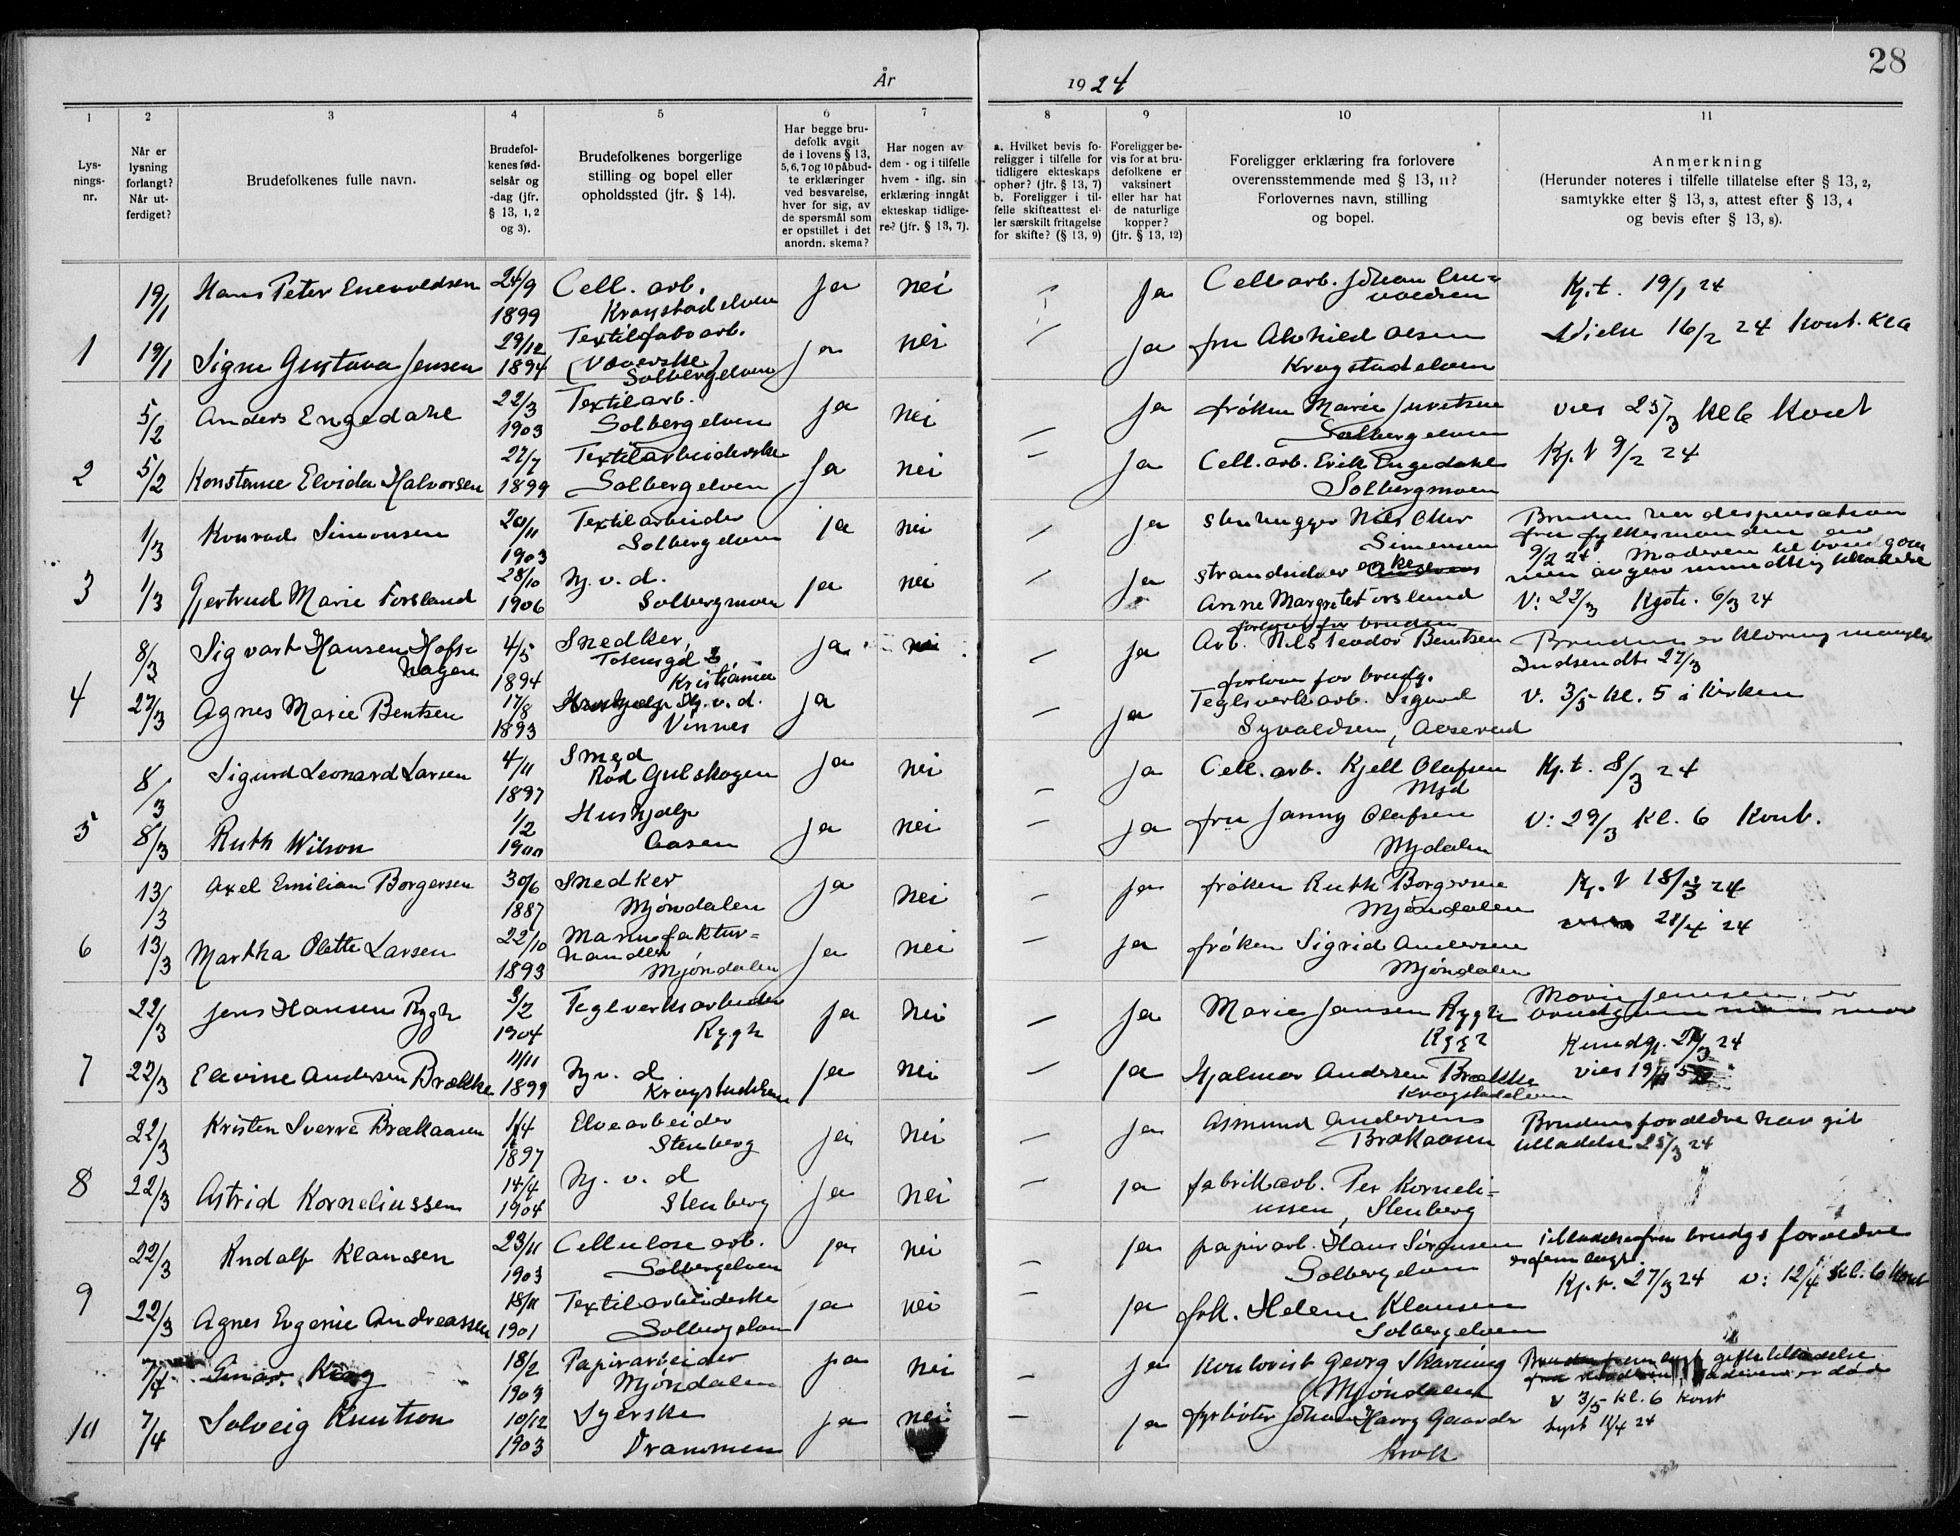 28
År 1924
1 2 3 4 5 6 7 8 9 10 11
Lys-
nings-
nr.
Når er
lysning
forlangt?
Når ut-
ferdiget?
Brudefolkenes fulle navn.
Brudefol-
kenes fød-
selsår og
-dag (jfr.
§ 13, 1, 2
og 3).
Brudefolkenes borgerlige
stilling og bopel eller
opholdssted (jfr. § 14).
Har begge bru-
defolk avgit
de i lovens § 13,
5, 6, 7 og 10 påbud-
te erklæringer
ved besvarelse,
hver for sig, av
de spørsmål som
er opstillet i det
anordn. skema?
Har nogen av
dem - og i tilfelle
hvem - iflg. sin
erklæring inngått
ekteskap tidlige-
re? (jfr. § 13, 7).
a. Hvilket bevis fo-
religger i tilfelle for
tidligere ekteskaps
ophør? (jfr. § 13, 7)
b. Foreligger i til-
felle skifteattest el-
ler særskilt fritagelse
for skifte? (§ 13, 9)
Foreligger be-
vis for at bru-
defolkene er
vaksinert
eller har hat
de naturlige
kopper?
(jfr. § 13, 12)
Foreligger erklæring fra forlovere
overensstemmende med § 13, 11?
Forlovernes navn, stilling
og bopel.
Anmerkning
(Herunder noteres i tilfelle tillatelse efter § 13, 2,
samtykke efter § 13, 3, attest efter § 13, 4
og bevis efter § 13, 8).
19/1 Hans Peter Enevoldsen 1899 Cell. arb. Krogstadelven ja nei ja Cell. arb. Johan Ene=
voldsen
Kj.t. 19/1 24
1 19/1 Signe Gustava Jensen 29/12 1894 Textilfabarb.
(Væverske)
Solbergelven ja nei ja fru Alvhild Olsen
Krogstadelven
16/2 24 Kont. Kl 6
5/2 Anders Engedahl 22/3 1903 Textilarb.
Solbergelven ja nei ja frøken Marie
Solbergelven
vies 25/3 Kl 6 Kont
2 5/2 Konstanse Elvida Halvorsen 27/7 1899 Textilarbeiderske
Solbergelven ja nei ja Cell. arb. Erik Engedahl
Solbergmoen
Kj. t 9/2 24
1/3 Konrad Simonsen 20/11 1903 Textilarbeider
Solbergelven ja nei ja stenhugger Nils
Simensen
Bruden har despensation
fra fylkesmanden
9/2 24 Moderen til brudgom
3 1/3 Gjertrud Marie Forsland 28/10 1906 Hj. v. d.
Solbergmoen ja nei ja
Anne Margrete Forsland
V: 22/3 6/3 24
8/3 Sigvart Hansen Hofs=
hagen 4/5 1894 Snedker,
Kristiania ja nei ja forlover for bruden
Arb. Nils Teodor Bentsen
Indsendt 27/3
4 27/3 Agnes Marie Bentsen 17/8 1893 Hj. v. d.
Vinnes ja ja forlover for brudg.
Teglverkarb. Sigurd
Syvaldsen, Aaserud
V. 3/5 kl. 5 i Kirken
8/3 Sigurd Leonard Larsen 4/11 1897 Smed
Rød Gulskogen ja nei ja Cell. arb. Kjell Olafsen
Mjd
Kj. t. 8/3 24
5 8/3 Ruth Wilson 1/2 1900 Hushjælp
Aasen ja nei ja fru Janny Olafsen
Mjdalen
V: 29/3 Kl. 6 Kont.
13/3 Axel Emilian Borgersen 30/6 1887 Snedker
Mjøndalen ja nei ja frøken Ruth Borgersen
Mjøndalen
Kj. t 18/3 24
28/4 24
6 13/3 Martha Olette Larsen 22/10 1893 Manufaktur=
handler
Mjøndalen ja nei ja frøken Sigrid Andersen
Mjøndalen
22/3 Jens Hansen Rygh 1904 Teglverksarbeider
Rygh ja nei ja Marie Jensen Rygh
Rygh
Marie Jensen er
brudgommens mor
7 22/3 Elvine Andersen Brække 11/11 1899 Hj v. d
Krogstadelven ja nei ja Hjalmar Andersen Brække
Krogstadelven
Kundgj. 24
vies 19
22/3 Kristen Sverre Brækaasen 1897 Elvearbeider
Stenberg ja nei ja Asmund Andersens
Brækaasen
Brudens forældre har git
tilladelse 25/3 24
8 22/3 Astrid Korneliussen 14/4 1904 Hj. v. d
Stenberg ja nei ja fabrikarb. Per Korneli=
ussen, Stenberg
22/3 Rudolf Klausen 23/11 1903 Cellulose arb.
Solbergelven ja nei ja papirarb. Hans Sørensen
Solbergelven
tilladelse fra brudgs forældre
er fremlagt.
Kj. t. 27/3 24 v: 12/4 Kl. 6 Kont
9 22/3 Agnes Evgenie Andreassen 18/11 1901 Textilarbeiderske
Solbergelven ja nei ja frk. Helene Klausen
Solbergelven
7/4 Einar Krog 18/2 1903 Papirarbeider
Mjøndalen ja nei ja Georg Skarning
Mjøndalen
v 3/5 Kl. 6 Kont
10 7/4 Solveig Knutson 10/12 1903 Syerske
Drammen ja nei ja fyrbøter Johan Harry Gaarder
Krok
lyst 11/4 24